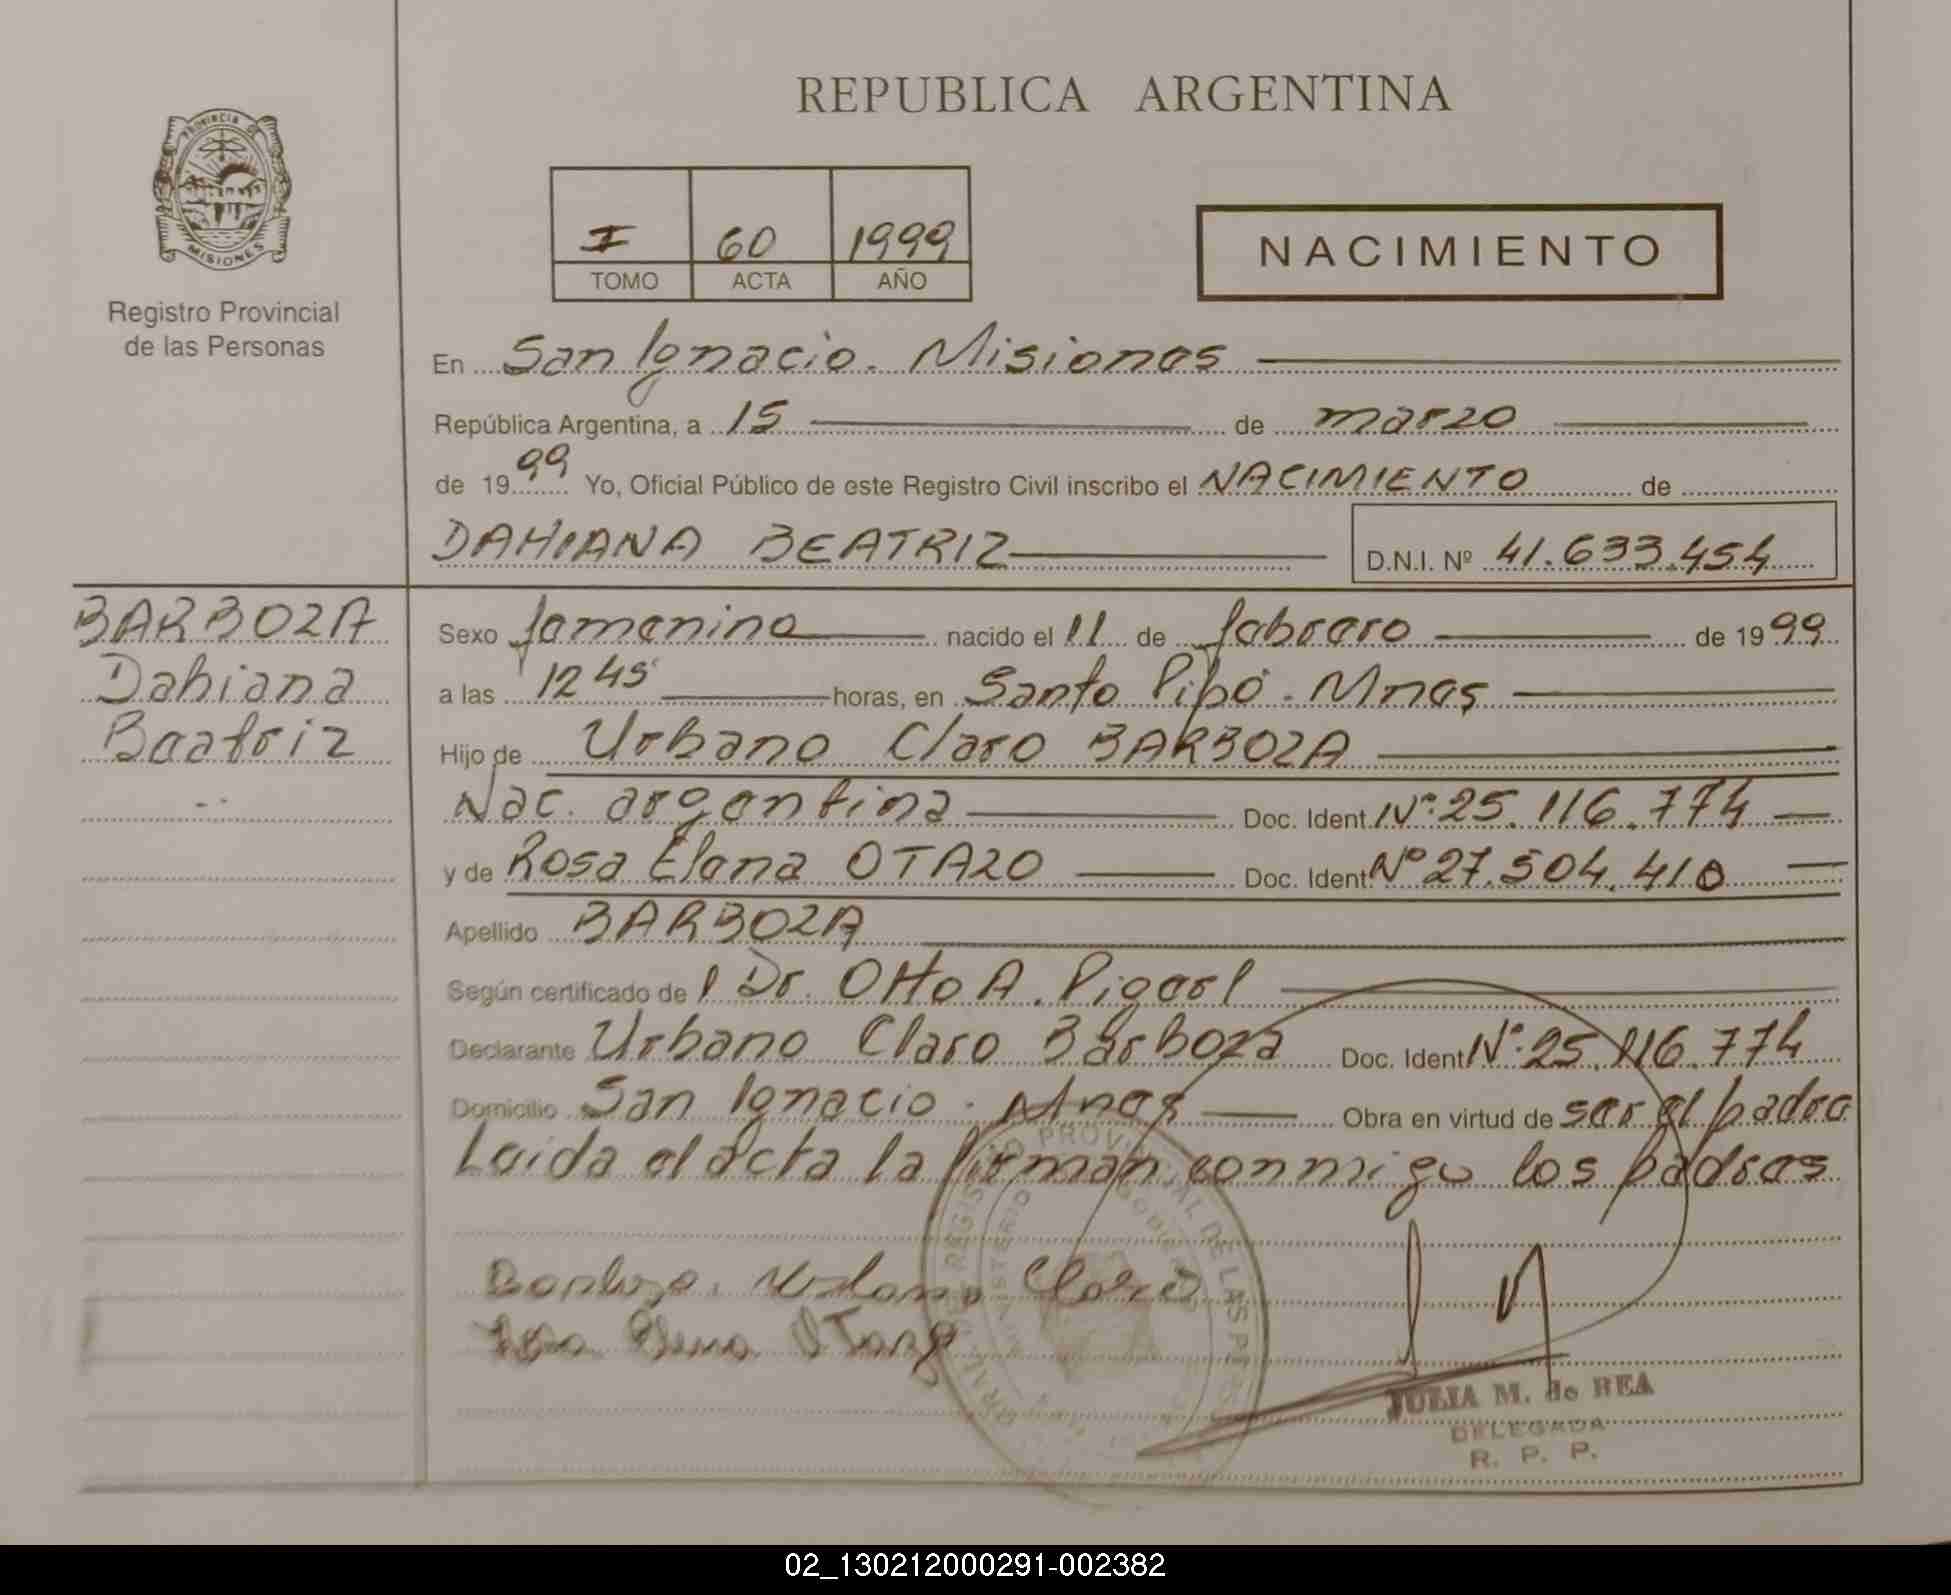 REPUBLICA ARGENTINA
PROVINCIA DE
MISIONES
Registro Provincial
de las Personas
I 60 1999
TOMO ACTA AÑO
NACIMIENTO
En San Ignacio. Misiones
República Argentina, a 15 de marzo
de 1999 Yo, Oficial Público de este Registro Civil inscribo el NACIMIENTO de
DAHIANA BEATRIZ D.N.I. Nº 41.633.454
BARBOZA
Dahiana
Beatriz
Sexo femenino nacido el 11 de febrero de 1999
a las 12 45' horas, en Santo Pipó. Mnes
Hijo de Urbano Claro BARBOZA
Nac. argentina Doc. Ident. Nº 25.116.774
y de Rosa Elena OTAZO Doc. Ident. Nº 27.504.410
Apellido BARBOZA
Según certificado de l Dr. Otto A.
Declarante Urbano Claro Barboza Doc. Ident. Nº 25.116.774
Domicilio San Ignacio. Mnes Obra en virtud de ser el padre
Leida el acta la firman conmigo los padres
Barboza. Urbano Claro
Rosa Elena Otazo
JULIA M. de REA
DELEGADA
R. P. P.
02_130212000291-002382